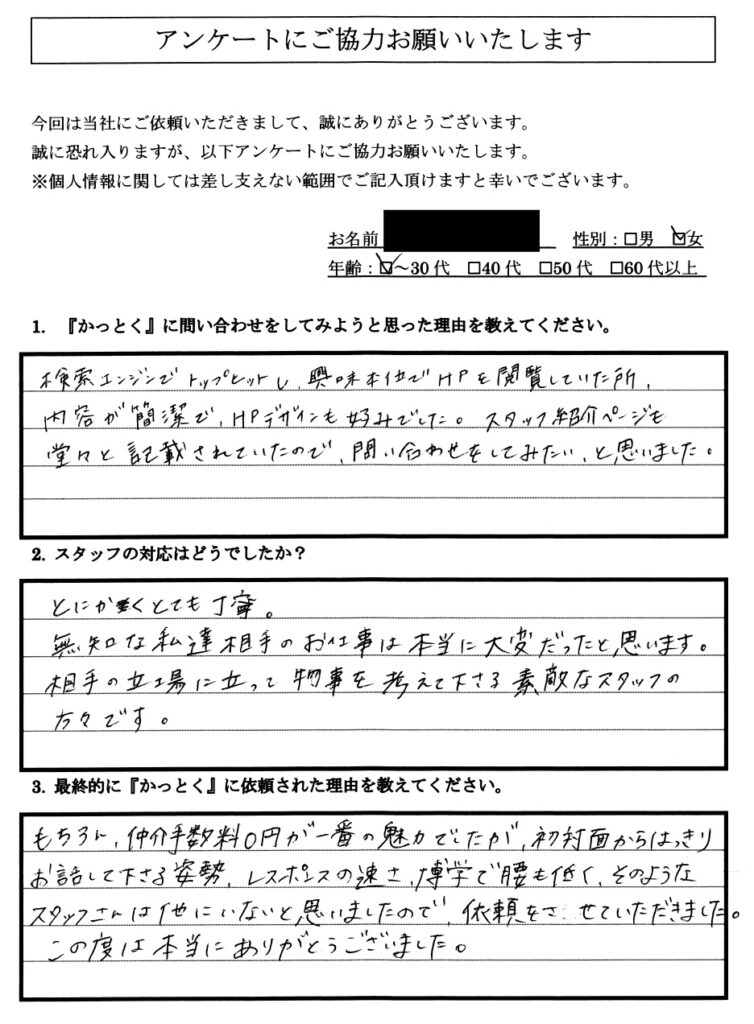 アンケートにご協力お願いいたします
今回は当社にご依頼いただきまして、誠にありがとうございます。
誠に恐れ入りますが、以下アンケートにご協力お願いいたします。
※個人情報に関しては差し支えない範囲でご記入頂けますと幸いでございます。
お名前 性別：□男 ☑女
年齢：☑～30代 □40代 □50代 □60代以上
1. 『かっとく』に問い合わせをしてみようと思った理由を教えてください。
検索エンジンでトップヒットし、興味本位でHPを閲覧していた所、
内容が簡潔で、HPデザインも好みでした。スタッフ紹介ページも
堂々と記載されていたので、問い合わせをしてみたい、と思いました。
2. スタッフの対応はどうでしたか？
とにかくとても丁寧。
無知な私達相手のお仕事は本当に大変だったと思います。
相手の立場に立って物事を考えて下さる素敵なスタッフの
方々です。
3. 最終的に『かっとく』に依頼された理由を教えてください。
もちろん、仲介手数料0円が一番の魅力でしたが、初対面からはっきり
お話して下さる姿勢、レスポンスの速さ、博学で腰も低く、そのような
スタッフさんは他にいないと思いましたので、依頼をさせていただきました。
この度は本当にありがとうございました。